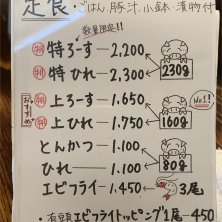 定食・ごはん、豚汁、小鉢、漬物付
数量限定!!
特 特ろーす—2,200
特 特ひれ—2,300
230g
おすすめ
特 上ろーす—1,650
No1!!
特 上ひれ—1,750
160g
とんかつ—1,100
ひれ—1,100
80g
エビフライ—1,450
3尾
エビフライトッピング1尾—450